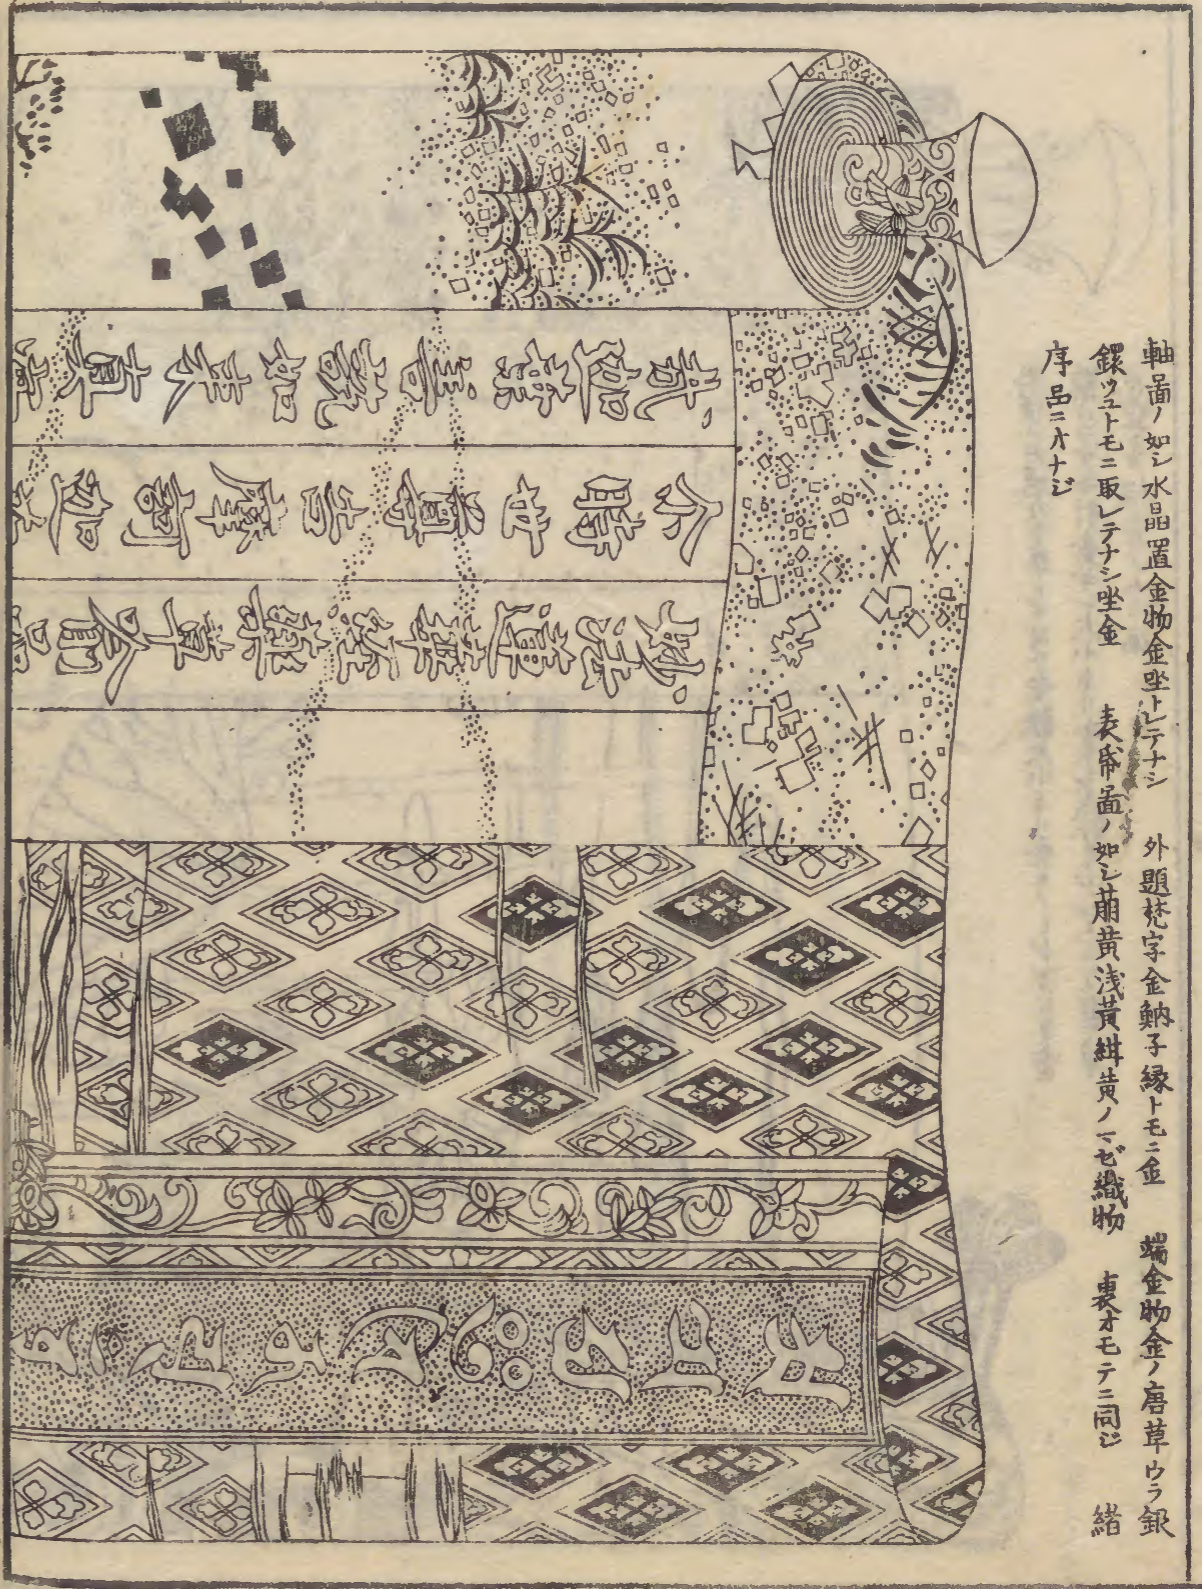 軸啚ノ如シ水晶置金物金坐トレテナシ 外題梵字金魶子縁トモニ金 端金物金ノ唐草ウラ銀
鐶ツユトモニ取レテナシ坐金 表帋啚ノ如シ萠黄浅黄紺黄ノマゼ織物 裏オモテニ同ジ 緒
序品ニオナジ
妙法蓮華經藥草喩品
尓時世尊告摩訶迦葉
哉迦葉善説如来真實